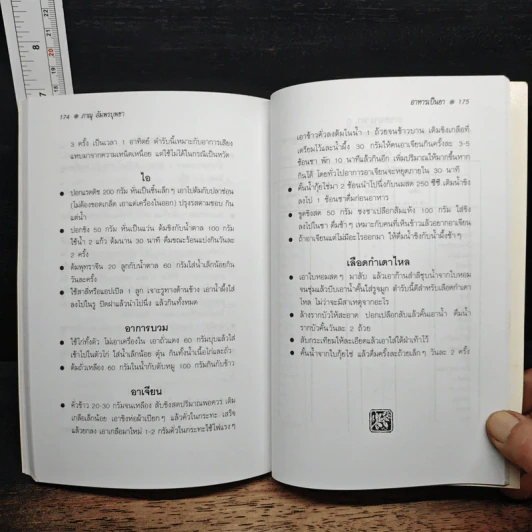 174 ๏ ภาณุ ลัมพรบุพชา
3 ครั้ง เป็นเวลา 1 อาทิตย์ ตำรับนี้เหมาะกับอาการเสียง
แหบมาจากความเหนื่อย แต่ใช้ไม่ได้ในกรณีเป็นหวัด
ไอ
• ปอกแรดิช 200 กรัม หั่นเป็นชิ้นเล็กๆ เอาไปต้มกับปลาช่อน
(ไม่ต้องขอดเกล็ด เอาแต่เครื่องในออก) ปรุงรสตามชอบ กิน
แต่น้ำ
• ปอกขิง 50 กรัม หั่นเป็นแว่น ต้มขิงกับน้ำตาล 100 กรัม
ใช้น้ำ 2 แก้ว ต้มนาน 30 นาที ดื่มขณะร้อนแบ่งกินวันละ
2 ครั้ง
• ต้มพุทราจีน 20 ลูกกับน้ำตาล 60 กรัมใส่น้ำเล็กน้อยกิน
วันละครั้ง
• ใช้สาลี่หรือแอปเปิล 1 ลูก เจาะรูทางด้านข้าง เอาน้ำผึ้งใส่
ลงไปในรู ปิดฝาแล้วนำไปนึ่ง แล้วกินทั้งหมด
อาการบวม
• ใช้ไก่ทั้งตัว ไม่เอาเครื่องใน เอาถั่วแดง 60 กรัมบุบแล้วใส่
เข้าไปในตัวไก่ ใส่น้ำเล็กน้อย ตุ๋น กินทั้งน้ำเนื้อไก่และถั่ว
• ต้มถั่วเหลือง 60 กรัมในน้ำกับตับหมู 100 กรัมกินกับข้าว
อาเจียน
• คั่วข้าว 20-30 กรัมจนเหลือง สับขิงสดปริมาณพอควร เติม
เกลือเล็กน้อย เอาขิงห่อผ้าเปียกๆ แล้วคั่วในกระทะ เสร็จ
แล้วยกลง เอาเกลือมาใหม่ 1-2 กรัมคั่วในกระทะใช้ไฟแรงๆ
อาหารเป็นยา ๏ 175
เอาข้าวคั่วลงต้มในน้ำ 1 ถ้วยจนข้าวบาน เติมขิงเกลือที่
เตรียมไว้และน้ำผึ้ง 30 กรัมให้คนอาเจียนกินครั้งละ 3-5
ช้อนชา พัก 10 นาทีแล้วกินอีก เพิ่มปริมาณให้มากขึ้นหาก
กินได้ โดยทั่วไปอาการอาเจียนจะหยุดภายใน 30 นาที
• คั้นน้ำกุ้ยไช่มา 2 ช้อนนำไปนึ่งกับนมสด 250 ซีซี เติมน้ำขิง
ลงไป 1 ช้อนชาดื่มก่อนอาหาร
• ขูดขิงสด 50 กรัม ชงชาเปลือกส้มแห้ง 100 กรัม ใส่ขิง
ลงไปในชา ดื่มช้าๆ เหมาะกับคนที่เห็นข้าวแล้วอยากอาเจียน
• ถ้าอาเจียนแต่ไม่มีอะไรออกมา ให้ดื่มน้ำขิงกับน้ำผึ้งช้าๆ
เลือดกำเดาไหล
• เอาใบหอมสดๆ มาสับ แล้วเอาก้านสำลีชุบน้ำจากใบหอม
จนชุ่มแล้วบีบเอาน้ำคั้นใส่รูจมูก ตำรับนี้ดีสำหรับเลือดกำเดา
ไหล ไม่ว่าจะมีสาเหตุจากอะไร
• ล้างรากบัวให้สะอาด ปอกเปลือกสับแล้วคั้นเอาน้ำ ดื่มน้ำ
รากบัวคั้นวันละ 2 ถ้วย
• สับกระเทียมให้ละเอียดแล้วเอาใส่ใต้ฝ่าเท้าไว้
• คั้นน้ำจากใบกุ้ยไช่ แล้วดื่มครั้งละถ้วยเล็กๆ วันละ 2 ครั้ง